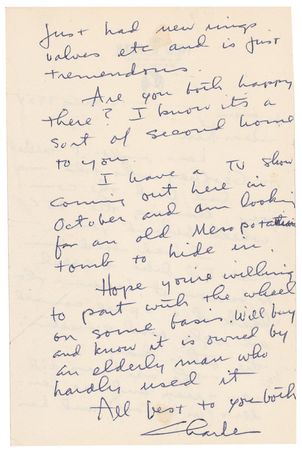 Just had new rings
valves etc and is just
tremendous.
Are you both happy
there? I know it's a
sort of second home
to you.
I have a TV show
coming out here in
October and am looking
for an old Mesopotamian
tomb to hide in.
Hope you're willing
to part with the wheel
on some basis. Will buy
and know it is owned by
an elderly man who
hardly used it
All best to you both
Charles